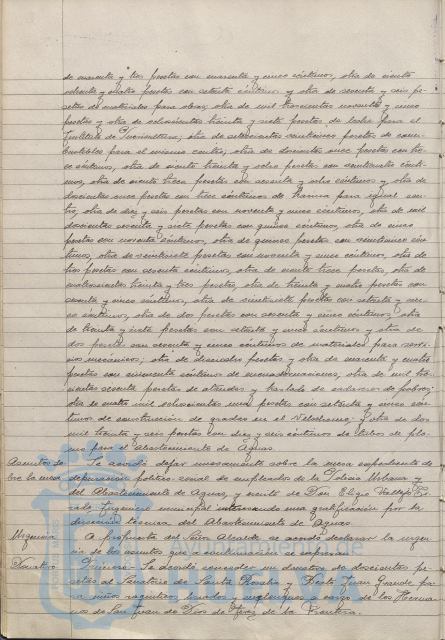 de cuarenta y tres pesetas con cuarenta y cinco céntimos, otra de ciento
ochenta y cuatro pesetas con setenta céntimos y otra de sesenta y seis pe-
setas de materiales para obras; otra de mil trescientas noventa y cinco
pesetas y otra de ochocientas treinta y siete pesetas de leche para el
Instituto de Puericultura; otra de setecientas veinticinco pesetas de comes-
tibles para el mismo centro; otra de doscientas once pesetas con tre-
ce céntimos, otra de ciento treinta y ocho pesetas con veinticuatro cénti-
mos, otra de ciento trece pesetas con sesenta y ocho céntimos y otra de
doscientas once pesetas con trece céntimos de harina para igual cen-
tro; otra de diez y seis pesetas con noventa y cinco céntimos, otra de mil
doscientas sesenta y siete pesetas con quince céntimos, otra de cinco
pesetas con noventa céntimos, otra de quince pesetas con veinticinco cén-
timos, otra de veintisiete pesetas con noventa y cinco céntimos, otra de
tres pesetas con sesenta céntimos, otra de ciento trece pesetas, otra de
cuatrocientas treinta y tres pesetas, otra de treinta y cuatro pesetas con
sesenta y cinco céntimos, otra de veintisiete pesetas con setenta y cin-
co céntimos, otra de dos pesetas con sesenta y cinco céntimos, otra
de treinta y siete pesetas con setenta y cinco céntimos y otra de
dos pesetas con sesenta y cinco céntimos de materiales para servi-
cios mecánicos; otra de doscientas pesetas y otra de cuarenta y cuatro
pesetas con cincuenta céntimos de encuadernaciones; otra de mil tres-
cientas sesenta pesetas de ataudes y traslado de cadáveres de pobres;
otra de cuatro mil ochocientas una pesetas con setenta y cinco cén-
timos de construcción de gradas en el Velódromo; y otra de dos
mil treinta y seis pesetas con diez y seis céntimos de tubos de plo-
mo para el abastecimiento de Aguas.
Asuntos so- Se acordó dejar nuevamente sobre la mesa expediente de
bre la mesa depuración político social de empleados de la Policía Urbana y
del Abastecimiento de Aguas, y escrito de Don Eligio
Ingeniero municipal interesando una gratificación por la
dirección técnica del Abastecimiento de Aguas.
Urgencia A propuesta del Señor Alcalde se acordó declarar la urgen-
cia de los asuntos que a continuación se expresan
Donativo Primero. Se acordó conceder un donativo de doscientas pe-
setas al Sanatorio de Santa Rosalía y Beato Juan Grande pa-
ra niños raquíticos, lisiados y a cargo de los Herma-
nos de San Juan de Dios de Jerez de la Frontera.